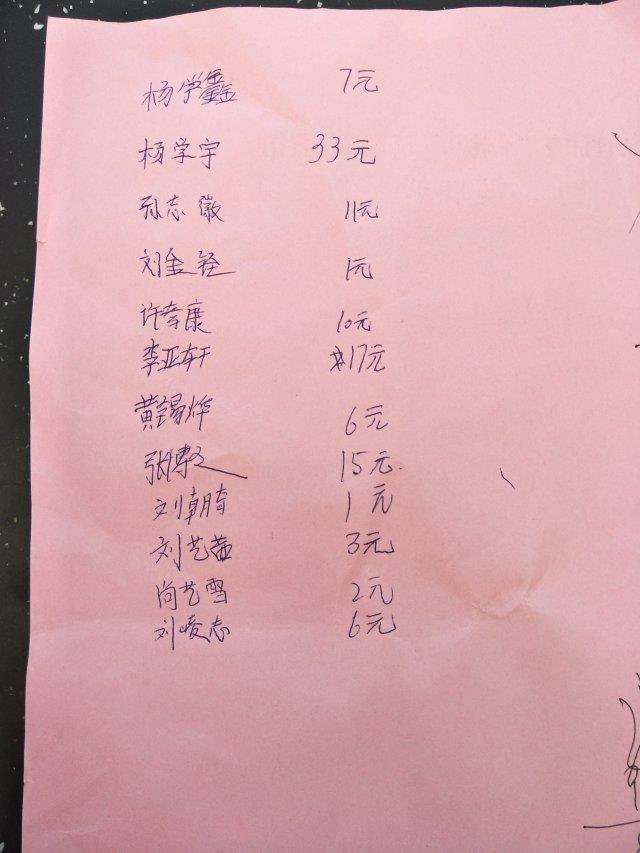 杨学鑫 7元
杨学宇 33元
孙志徽 11元
刘金铨 1元
许孝康 10元
李亚轩 17元
黄锡烨 6元
张 15元
刘朝 1元
刘艺茜 3元
尚艺雪 2元
刘崚志 6元